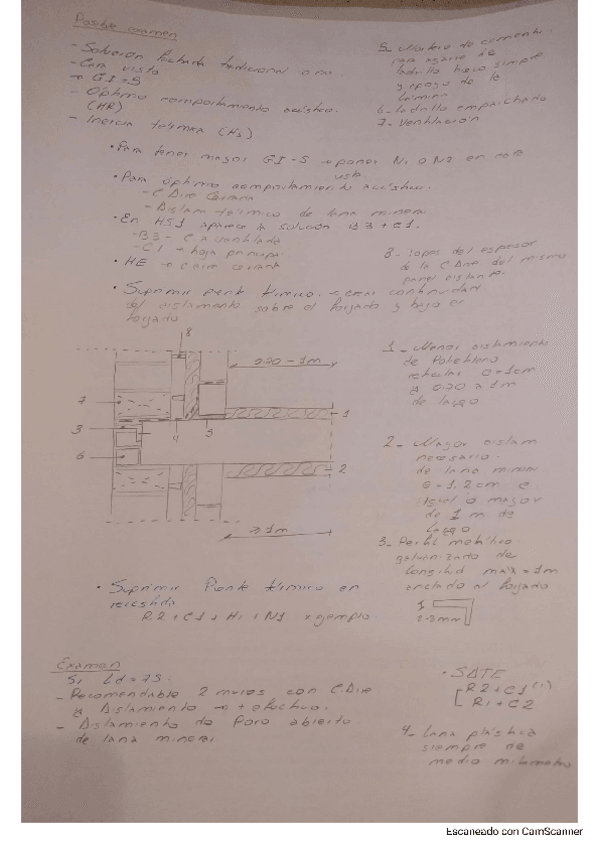 Posible examen
- Solución fachada tradicional
- Cara vista
→ GI=5
- Óptimo comportamiento acústico.
(HR)
- Inercia térmica (H3)
• Para tener mayor GI-5 → poner N1 o N2 en cara
vista.
• Para óptimo comportamiento acústico.
- C. Aire Cerrada
- Aislam térmico de lana mineral
• En HS1 aparece la solución B3 + C1.
- B3 - C.A ventilada
- C1 - hoja principal
• HE → C. aire cerrada
• Suprimir pente térmico. → crear continuidad
del aislamento sobre el forjado y bajo el
forjado
5- Mortero de cemento
para agarre de
ladrillo hueco simple
y apoyo de la
lámina
6- Ladrillo emparchado
7- Ventilación
8- Topes del espesor
de la C. Aire del mismo
panel aislante.
8
0.70 - 1m
7
3
6
4
5
1
2
≥ 1m
1- Menor aislamiento
de Polietileno
reticular e=1cm
a 0.70 a 1m
de largo
2- Mayor aislam
necesario.
de lana miner
e=1.2cm e
igual o mayor
de 1 m de
largo
3- Perfil metálico
galvanizado de
longitud max=1m
anclado al forjado
1
2-3mm
• Suprimir Pente térmico en
R2 + C1 + H1 + N1 x ejemplo.
Examen
Si Ld = 75.
- Recomendable 2 muros con C. Aire
a Aislamiento → + efectivo.
- Aislamiento de Poro abierto
de lana mineral
• SATE
R2 + C1 (1)
R1 + C2
4- Lana plástica
siempre de
medio milímetro
Escaneado con CamScanner